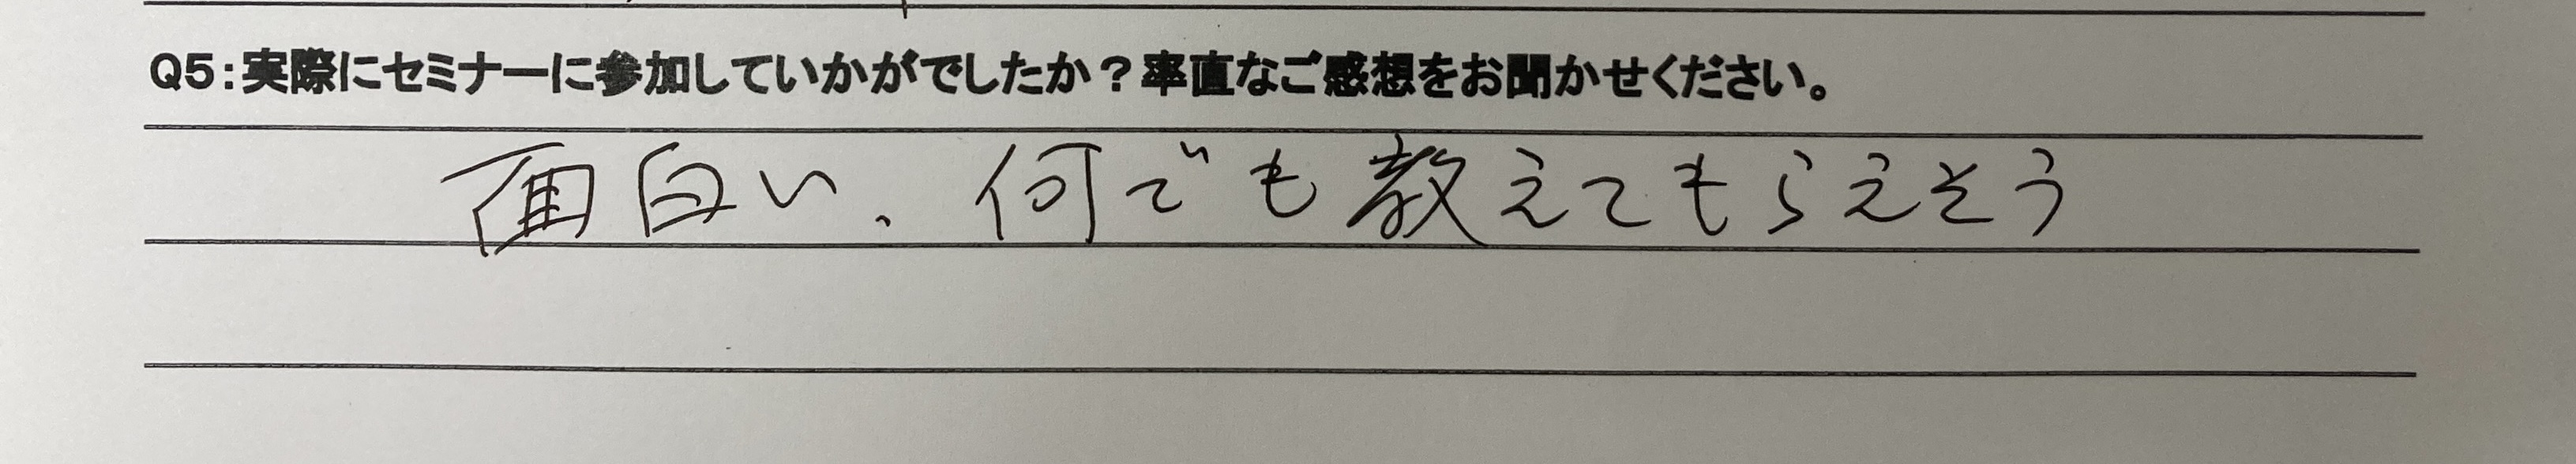 Q5:実際にセミナーに参加していかがでしたか？率直なご感想をお聞かせください。
面白い、何でも教えてもらえそう